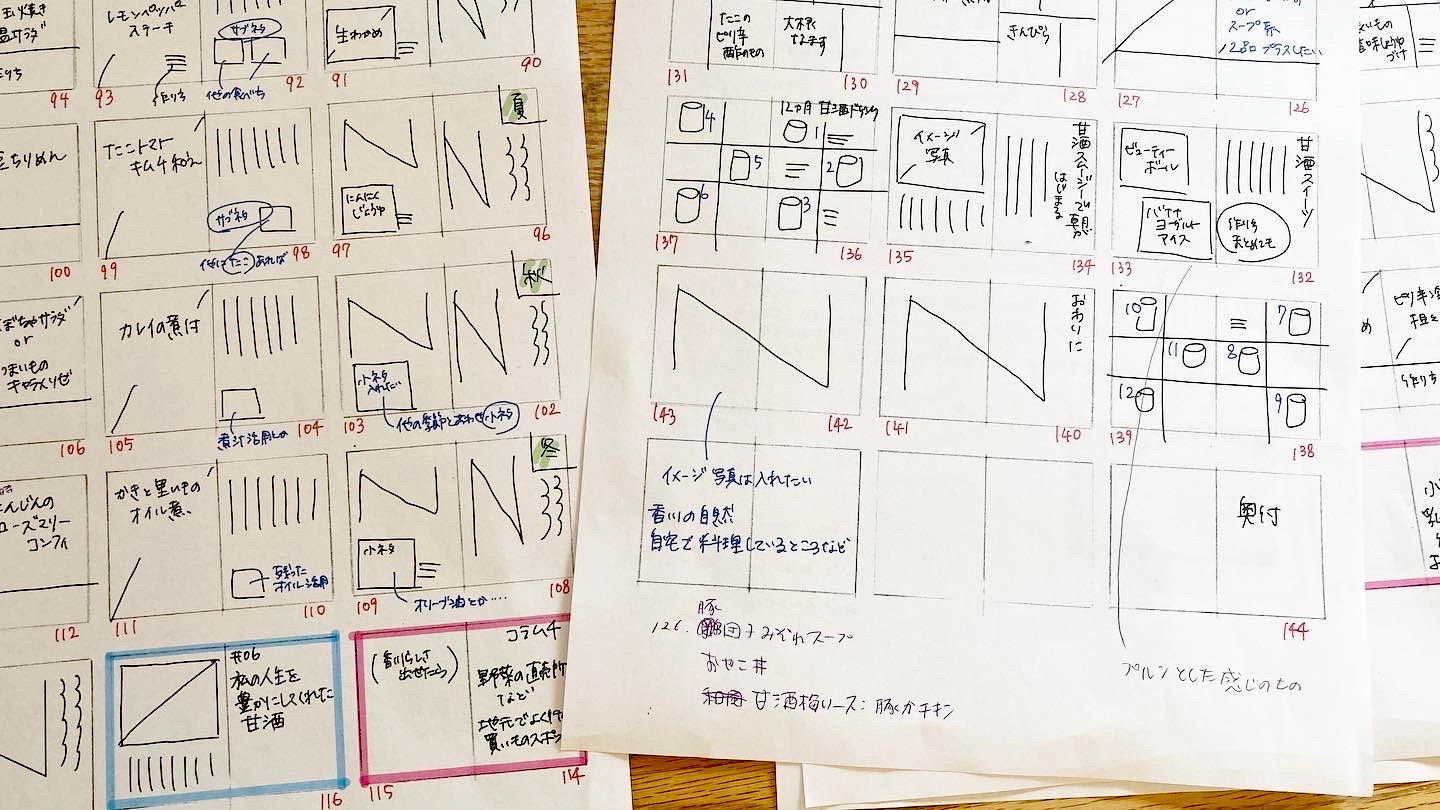 レモンペッパー
ステーキ
サブネタ
作り方
他の食べ方
94
93
92
生わかめ
91
90
たこトマト
キムチ和え
サブネタ
他にたこあれば
100
99
98
夏
にんにく
じょうゆ
97
96
or
106
カレイの煮付
煮汁活用とか
105
104
秋
小ネタ
入れたい
他の季節とあわせ小ネタ
103
102
にんじんの
ローズマリー
コンフィ
112
かきと里いもの
オイル煮
残った
オイル活用
111
110
冬
小ネタ
オリーブ油とか‥‥
109
108
#06
私の人生を
豊かにしてくれた
甘酒
116
コラム4
(香川らしさ
出せたら)
野菜の直売所
など
115
114
たこの
ピリ辛
酢のもの
大根
なます
131
130
きんぴら
129
128
or
スープ系
128プラスしたい
127
126
12ヵ月 甘酒ドリンク
4
1
5
2
6
3
137
136
イメージ
写真
甘酒スムージーで朝が
はじまる
135
134
甘酒スイーツ
ビューティー
ボール
バナナ
ヨーグルト
アイス
作り方
まとめても
133
132
143
142
おわりに
141
140
10
7
11
8
12
9
139
138
イメージ写真は入れたい
香川の自然
自宅で料理しているところなど
奥付
144
126. 豚団子みぞれスープ
おやこ丼
甘酒梅ソース:豚かチキン
プルンとした感じのもの
作り方